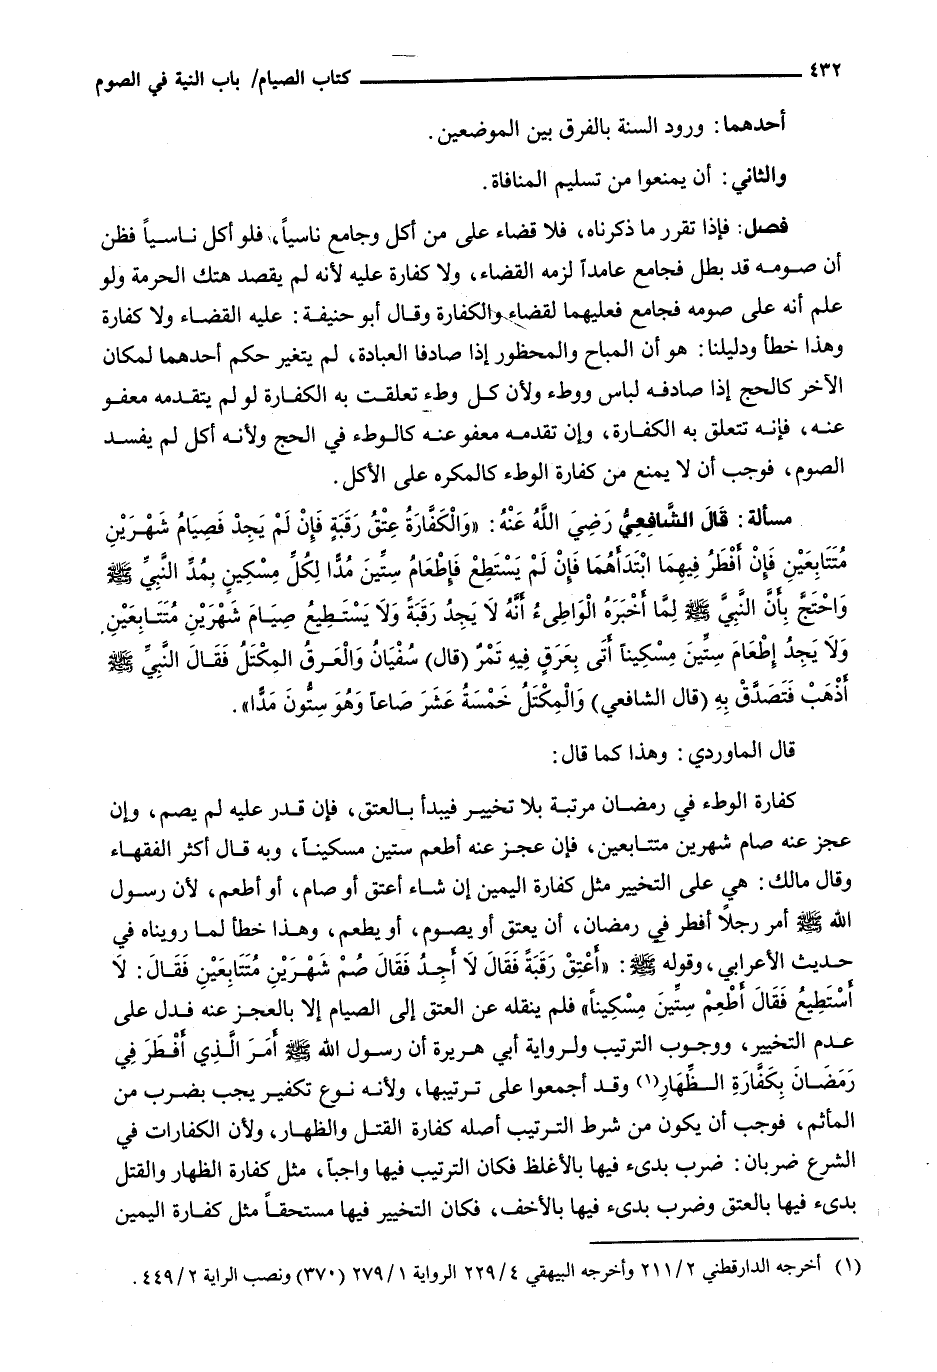 ٤٣٢ كتاب الصيام/ باب النية في الصوم
أحدهما: ورود السنة بالفرق بين الموضعين.
والثاني: أن يمنعوا من تسليم المنافاة.
فصل: فإذا تقرر ما ذكرناه، فلا قضاء على من أكل وجامع ناسياً، فلو أكل ناسياً فظن
أن صومه قد بطل فجامع عامداً لزمه القضاء، ولا كفارة عليه لأنه لم يقصد هتك الحرمة ولو
علم أنه على صومه فجامع فعليهما لقضاء والكفارة وقال أبو حنيفة: عليه القضاء ولا كفارة
وهذا خطأ ودليلنا: هو أن المباح والمحظور إذا صادفا العبادة، لم يتغير حكم أحدهما لمكان
الآخر كالحج إذا صادفه لباس ووطء ولأن كل وطء تعلقت به الكفارة لو لم يتقدمه معفو
عنه، فإنه تتعلق به الكفارة، وإن تقدمه معفو عنه كالوطء في الحج ولأنه أكل لم يفسد
الصوم، فوجب أن لا يمنع من كفارة الوطء كالمكره على الأكل.
مسألة: قَالَ الشَّافِعِيُّ رَضِيَ اللَّهُ عَنْهُ: «وَالْكَفَّارَةُ عِتْقُ رَقَبَةٍ فَإِنْ لَمْ يَجِدْ فَصِيَامُ شَهْرَيْنِ
مُتَتَابِعَيْنِ فَإِنْ أَفْطَرُ فِيهِمَا ابْتَدَأَهُمَا فَإِنْ لَمْ يَسْتَطِعْ فَإِطْعَامُ سِتِّينَ مُدًّا لِكُلِّ مِسْكِينٍ بِمُدِّ النَّبِيِّ ﷺ
وَاحْتَجَّ بِأَنَّ النَّبِيَّ ﷺ لِمَّا أَخْبَرَهُ الْوَاطِىءُ أَنَّهُ لَا يَجِدُ رَقَبَةً وَلَا يَسْتَطِيعُ صِيَامَ شَهْرَيْنِ مُتَتَابِعَيْنِ
وَلَا يَجِدُ إِطْعَامَ سِتِّينَ مِسْكِيناً أَتَى بِعَرَقٍ فِيهِ تَمْرٌ (قال) سُفْيَانُ وَالْعَرقُ المِكْتَلُ فَقَالَ النَّبِيِّ ﷺ
أَذْهَبْ فَتَصَدَّقْ بِهِ (قال الشافعي) وَالْمِكْتَلُ خَمْسَةُ عَشَرَ صَاعاً وَهُوَ سِتُّونَ مَدًّا».
قال الماوردي: وهذا كما قال:
كفارة الوطء في رمضان مرتبة بلا تخيير فيبدأ بالعتق، فإن قدر عليه لم يصم، وإن
عجز عنه صام شهرين متتابعين، فإن عجز عنه أطعم ستين مسكيناً، وبه قال أكثر الفقهاء
وقال مالك: هي على التخيير مثل كفارة اليمين إن شاء أعتق أو صام، أو أطعم، لأن رسول
الله ﷺ أمر رجلاً أفطر في رمضان، أن يعتق أو يصوم، أو يطعم، وهذا خطأ لما رويناه في
حديث الأعرابي، وقوله ﷺ: «أَعْتِقْ رَقَبَةً فَقَالَ لَا أَجِدُ فَقَالَ صُمْ شَهْرَيْنِ مُتَتَابِعَيْنِ فَقَالَ: لَا
أَسْتَطِيعُ فَقَالَ أَطْعِمْ سِتِّينَ مِسْكِيناً» فلم ينقله عن العتق إلى الصيام إلا بالعجز عنه فدل على
عدم التخيير، ووجوب الترتيب ولرواية أبي هريرة أن رسول الله ﷺ أَمَرَ الَّذِي أَفْطَرَ فِي
رَمَضَانَ بِكَفَّارَةِ الظِّهَارِ(١) وقد أجمعوا على ترتيبها، ولأنه نوع تكفير يجب بضرب من
المأثم، فوجب أن يكون من شرط الترتيب أصله كفارة القتل والظهار، ولأن الكفارات في
الشرع ضربان: ضرب بدىء فيها بالأغلظ فكان الترتيب فيها واجباً، مثل كفارة الظهار والقتل
بدىء فيها بالعتق وضرب بدىء فيها بالأخف، فكان التخيير فيها مستحقاً مثل كفارة اليمين
(١) أخرجه الدارقطني ٢/ ٢١١ وأخرجه البيهقي ٤/ ٢٢٩ الرواية ١/ ٢٧٩ (٣٧٠) ونصب الراية ٢/ ٤٤٩.